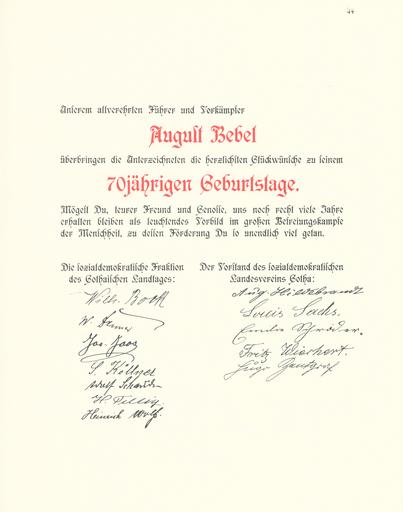 44
Unserem allverehrten Führer und Vorkämpfer
August Bebel
überbringen die Unterzeichneten die herzlichsten Glückwünsche zu seinem
70jährigen Geburtstage.
Mögest Du, teurer Freund und Genosse, uns noch recht viele Jahre
erhalten bleiben als leuchtendes Vorbild im großen Befreiungskampfe
der Menschheit, zu dessen Förderung Du so unendlich viel getan.
Die sozialdemokratische Fraktion
des Gothaischen Landtages:
Wilh. Bock
W.
Jos.
S. Köllner
Adolf
H.
Heinrich Wolf.
Der Vorstand des sozialdemokratischen
Landesvereins Gotha:
Aug. Hildebrandt
Louis Sachs.
Schröder.
Fritz Wiechert.
Hugo